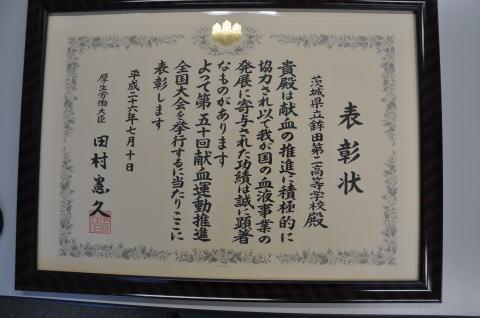 表彰状
茨城県立鉾田第二高等学校殿
貴殿は献血の推進に積極的に
協力され以て我が国の血液事業の
発展に寄与された功績は誠に顕著
なものがあります
よって第五十回献血運動推進
全国大会を挙行するに当たりここに
表彰します
平成二十六年七月十日
厚生労働大臣 田村憲久